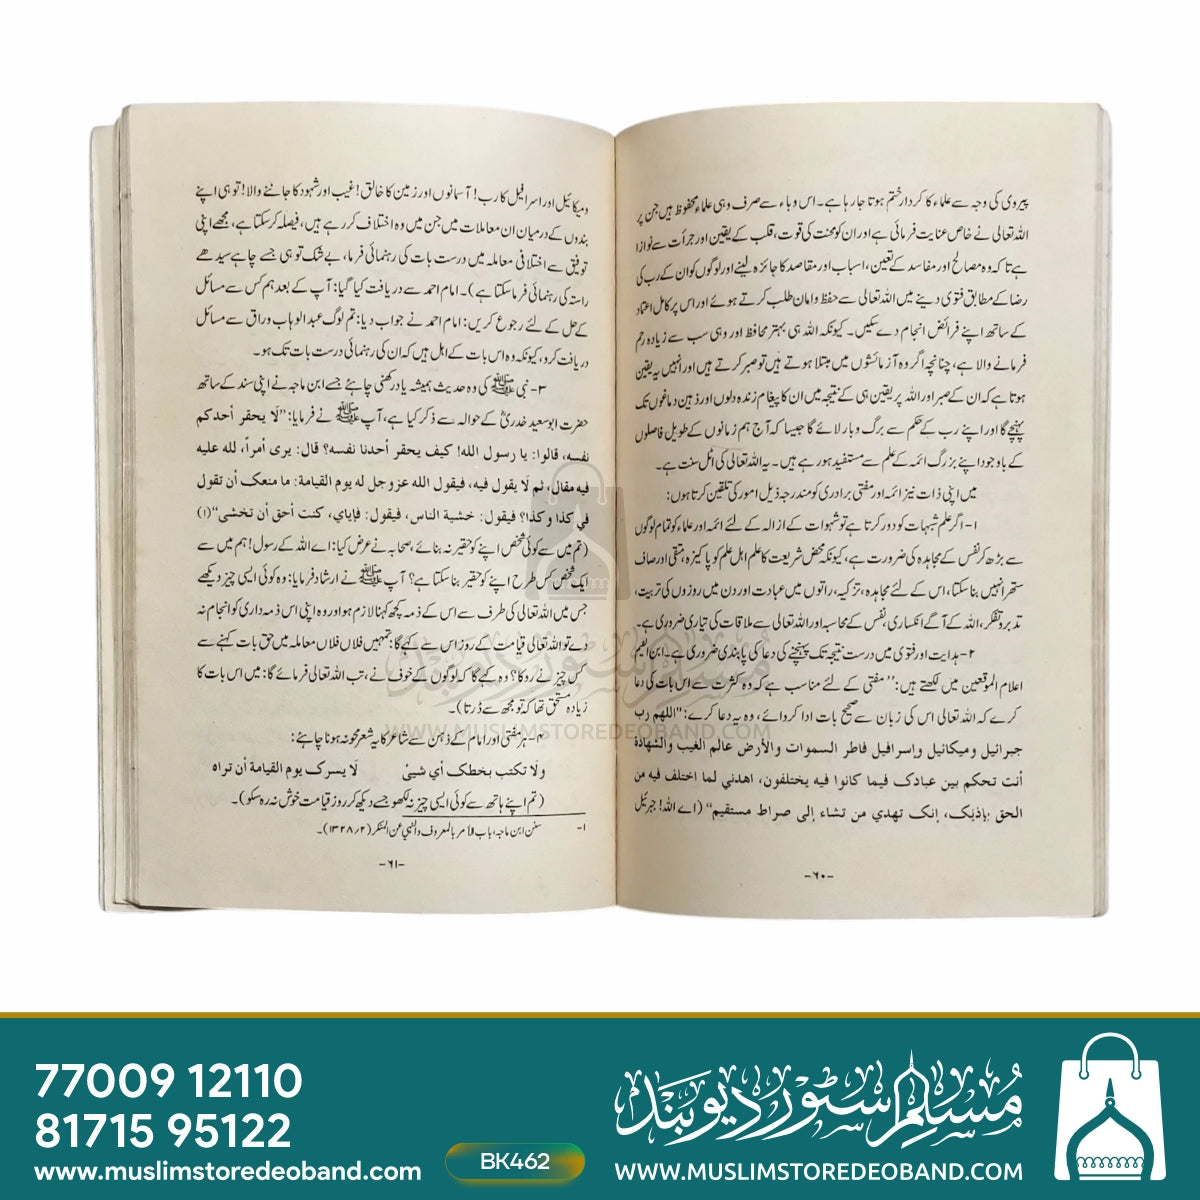 پیروی کی وجہ سے علماء کا کردار ختم ہوتا جا رہا ہے۔ اس وباء سے صرف وہی علماء محفوظ ہیں جن پر
اللہ تعالی نے خاص عنایت فرمائی ہے اور ان کو محنت کی قوت، قلب کے یقین اور جرأت سے نوازا
ہے تا کہ وہ مصالح اور مفاسد کے تعین، اسباب اور مقاصد کا جائزہ لینے اور لوگوں کو ان کے رب کی
رضا کے مطابق فتوی دینے میں اللہ تعالی سے حفظ و امان طلب کرتے ہوئے اور اس پر کامل اعتماد
کے ساتھ اپنے فرائض انجام دے سکیں۔ کیونکہ اللہ ہی بہتر محافظ اور وہی سب سے زیادہ رحم
فرمانے والا ہے، چنانچہ اگر وہ آزمائشوں میں مبتلا ہوتے ہیں تو صبر کرتے ہیں اور انہیں یہ یقین
ہوتا ہے کہ ان کے صبر اور اللہ پر یقین ہی کے نتیجہ میں ان کا پیغام زندہ دلوں اور ذہین دماغوں تک
پہنچے گا اور اپنے رب کے حکم سے برگ و بار لائے گا جیسا کہ آج ہم زمانوں کے طویل فاصلوں
کے باوجود اپنے بزرگ ائمہ کے علم سے مستفید ہو رہے ہیں۔ یہ اللہ تعالی کی اٹل سنت ہے۔
میں اپنی ذات نیز ائمہ اور مفتی برادری کو مندرجہ ذیل امور کی تلقین کرتا ہوں:
۱- اگر علم شبہات کو دور کرتا ہے تو شہوات کے ازالہ کے لئے ائمہ اور علماء کو تمام لوگوں
سے بڑھ کر نفس کے مجاہدہ کی ضرورت ہے، کیونکہ محض شریعت کا علم اہل علم کو پاکیزہ، متقی اور صاف
ستھرا نہیں بنا سکتا، اس کے لئے مجاہدہ، تزکیہ، راتوں میں عبادت اور دن میں روزوں کی تربیت،
تدبر و تفکر، اللہ کے آگے انکساری، نفس کے محاسبہ اور اللہ تعالی سے ملاقات کی تیاری ضروری ہے۔
۲- ہدایت اور فتوی میں درست نتیجہ تک پہنچنے کی دعا کی پابندی ضروری ہے۔ ابن القیم
اعلام الموقعین میں لکھتے ہیں: ’’مفتی کے لئے مناسب ہے کہ وہ کثرت سے اس بات کی دعا
کرے کہ اللہ تعالی اس کی زبان سے صحیح بات ادا کروائے، وہ یہ دعا کرے: "اللهم رب
جبرائيل وميكائيل وإسرافيل فاطر السموات والأرض عالم الغيب والشهادة
أنت تحكم بين عبادك فيما كانوا فيه يختلفون، اهدني لما اختلف فيه من
الحق بإذنك، إنك تهدي من تشاء إلى صراط مستقيم" (اے اللہ! جبرئیل
-۶۰-
ومیکائیل اور اسرافیل کا رب! آسمانوں اور زمین کا خالق! غیب اور شہود کا جاننے والا! تو ہی اپنے
بندوں کے درمیان ان معاملات میں جن میں وہ اختلاف کر رہے ہیں، فیصلہ کر سکتا ہے، مجھے اپنی
توفیق سے اختلافی معاملہ میں درست بات کی رہنمائی فرما، بے شک تو ہی جسے چاہے سیدھے
راستہ کی رہنمائی فرما سکتا ہے)۔ امام احمد سے دریافت کیا گیا: آپ کے بعد ہم کس سے مسائل
کے حل کے لئے رجوع کریں: امام احمد نے جواب دیا: تم لوگ عبد الوہاب وراق سے مسائل
دریافت کرو، کیونکہ وہ اس بات کے اہل ہیں کہ ان کی رہنمائی درست بات تک ہو۔
۳- نبی ﷺ کی وہ حدیث ہمیشہ یاد رکھنی چاہئے جسے ابن ماجہ نے اپنی سند کے ساتھ
حضرت ابو سعید خدریؓ کے حوالہ سے ذکر کیا ہے، آپ ﷺ نے فرمایا: "لا يحقر أحدكم
نفسه، قالوا: يا رسول الله! كيف يحقر أحدنا نفسه؟ قال: يرى أمراً، لله عليه
فيه مقال، ثم لا يقول فيه، فيقول الله عزوجل له يوم القيامة: ما منعك أن تقول
في كذا وكذا؟ فيقول: خشية الناس، فيقول: فإياي، كنت أحق أن تخشى"(۱)
(تم میں سے کوئی شخص اپنے کو حقیر نہ بنائے، صحابہ نے عرض کیا: اے اللہ کے رسول! ہم میں سے
ایک شخص کس طرح اپنے کو حقیر بنا سکتا ہے؟ آپ ﷺ نے ارشاد فرمایا: وہ کوئی ایسی چیز دیکھے
جس میں اللہ تعالی کی طرف سے اس کے ذمہ کچھ کہنا لازم ہو اور وہ اپنی اس ذمہ داری کو انجام نہ
دے تو اللہ تعالی قیامت کے روز اس سے کہے گا: تمہیں فلاں فلاں معاملہ میں حق بات کہنے سے
کس چیز نے روکا؟ وہ کہے گا کہ لوگوں کے خوف نے، تب اللہ تعالی فرمائے گا: میں اس بات کا
زیادہ مستحق تھا کہ تو مجھ سے ڈرتا)۔
۴- ہر مفتی اور امام کے ذہن سے شاعر کا یہ شعر محو نہ ہونا چاہئے:
ولا تكتب بخطك أي شيئ لا يسرك يوم القيامة أن تراه
(تم اپنے ہاتھ سے کوئی ایسی چیز نہ لکھو جسے دیکھ کر روز قیامت خوش نہ رہ سکو)۔
۱- سنن ابن ماجہ، باب الامر بالمعروف والنہی عن المنکر (۲/۱۳۲۸)۔
-۶۱-
مسلم سٹور دیوبند
WWW.MUSLIMSTOREDEOBAND.COM
77009 12110
81715 95122
www.muslimstoredeoband.com
BK462
مسلم سٹور دیوبند
WWW.MUSLIMSTOREDEOBAND.COM